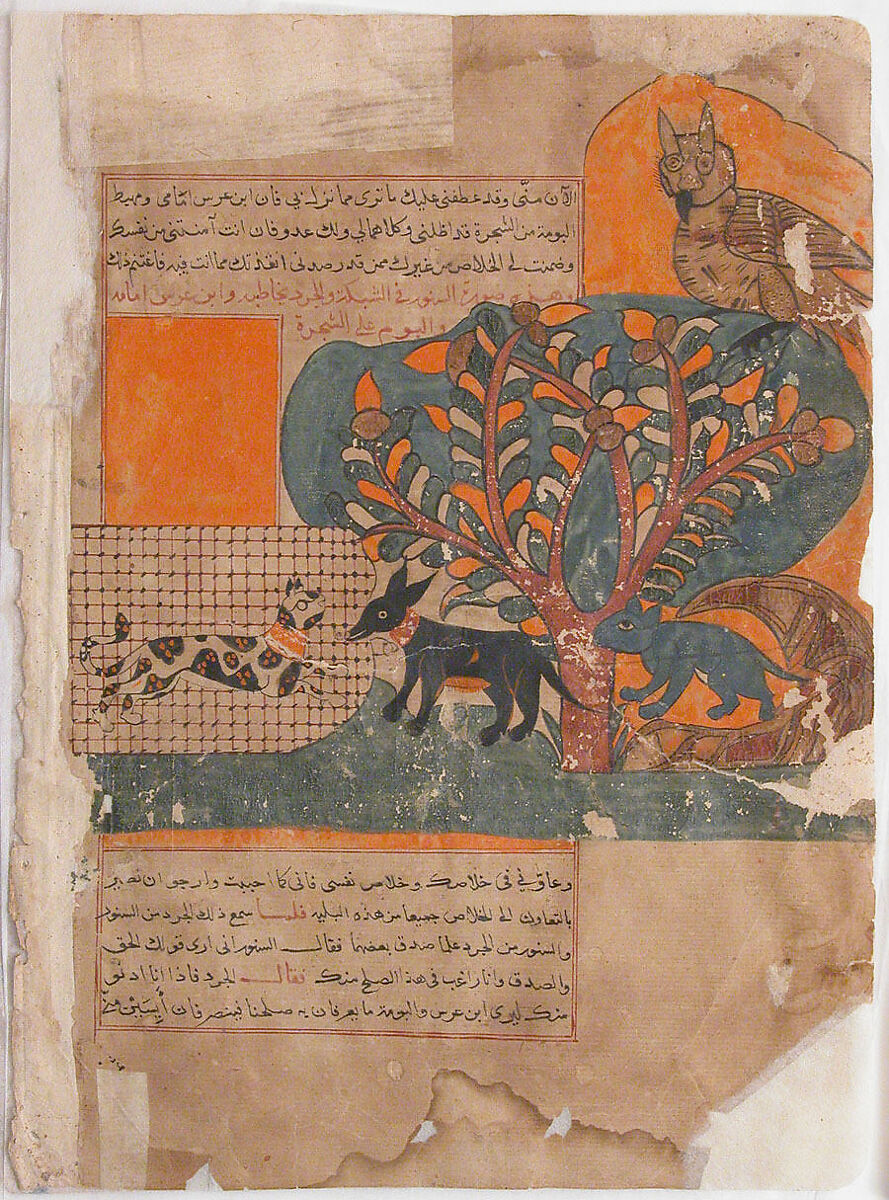 الآن منّي وقد عطفني عليك ما ترى مما نزل بي فان ابن عرس امامي ومحيط
البومة من الشجرة قد اظلني وكلاهما لي ولك عدو فان انت آمنتني من نفسك
وضمنت لي الخلاص من غيرك ممن قد رصدني انقذتك مما انت فيه فاغتنم ذلك
وهذه صورة السنور في الشبكة والجرد يخاطبه وابن عرس امامه
والبوم على الشجرة
وعاوني في خلاصك وخلاص نفسي فاني كما احببت وارجو ان نصير
بالتعاون الى الخلاص جميعا من هذه البليه فلمـا سمع ذلك الجرد من السنور
والسنور من الجرد علما صدق بعضهما فقال السنور اني ارى قولك الحق
والصدق وانا راغب في هذا الصلح منك فقال الجرد فاذا انا ادنو
منك ليرى ابن عرس والبومة ما يعرفان به صلحنا فينصرفان آيسين منّي